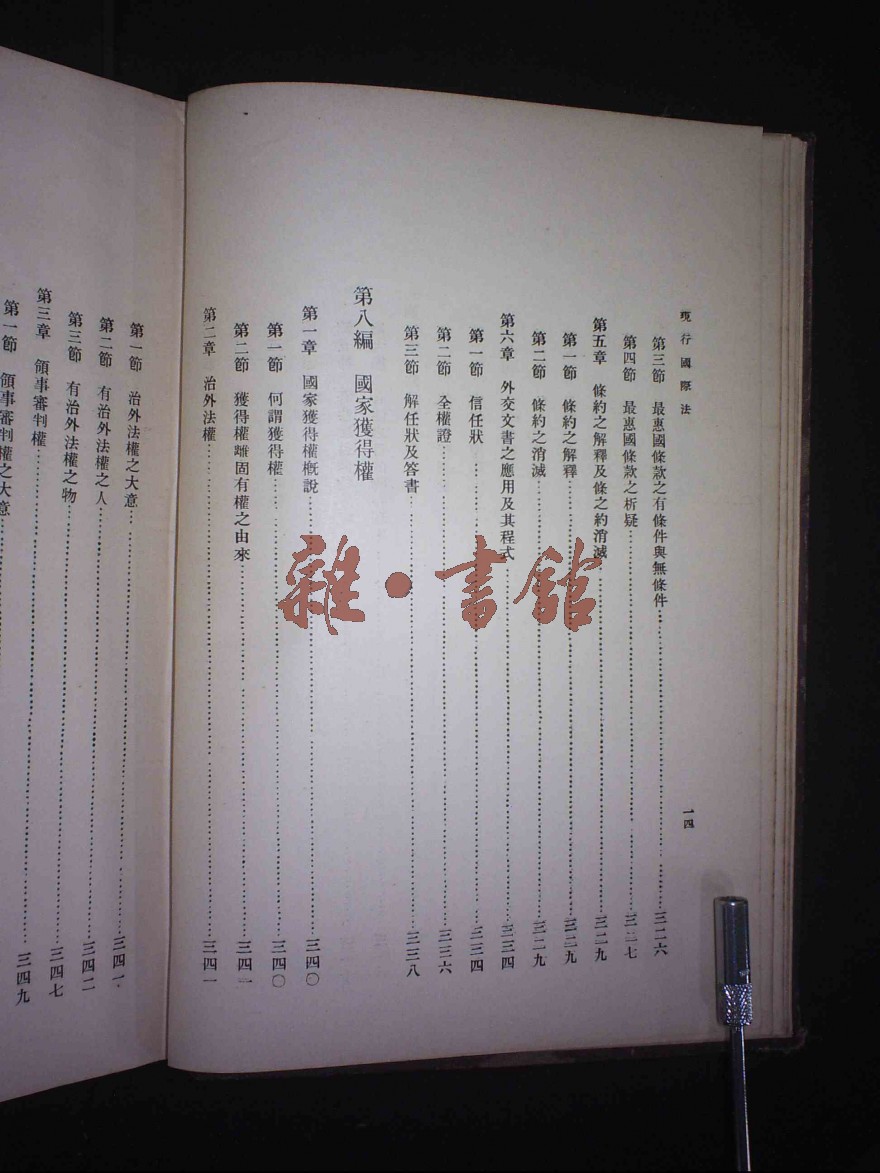 現行國際法
一四
第三節 最惠國條款之有條件與無條件……三二六
第四節 最惠國條款之析疑……三二七
第五章 條約之解釋及條之約消滅……三二九
第一節 條約之解釋……三二九
第二節 條約之消滅……三二九
第六章 外交文書之應用及其程式……三三四
第一節 信任狀……三三四
第二節 全權證……三三六
第三節 解任狀及答書……三三八
第八編 國家獲得權
第一章 國家獲得權概說……三四〇
第一節 何謂獲得權……三四〇
第二節 獲得權離固有權之由來……三四一
第二章 治外法權……三四一
第一節 治外法權之大意……三四一
第二節 有治外法權之人……三四二
第三節 有治外法權之物……三四七
第三章 領事審判權……三四九
第一節 領事審判權之大意
雜·書館